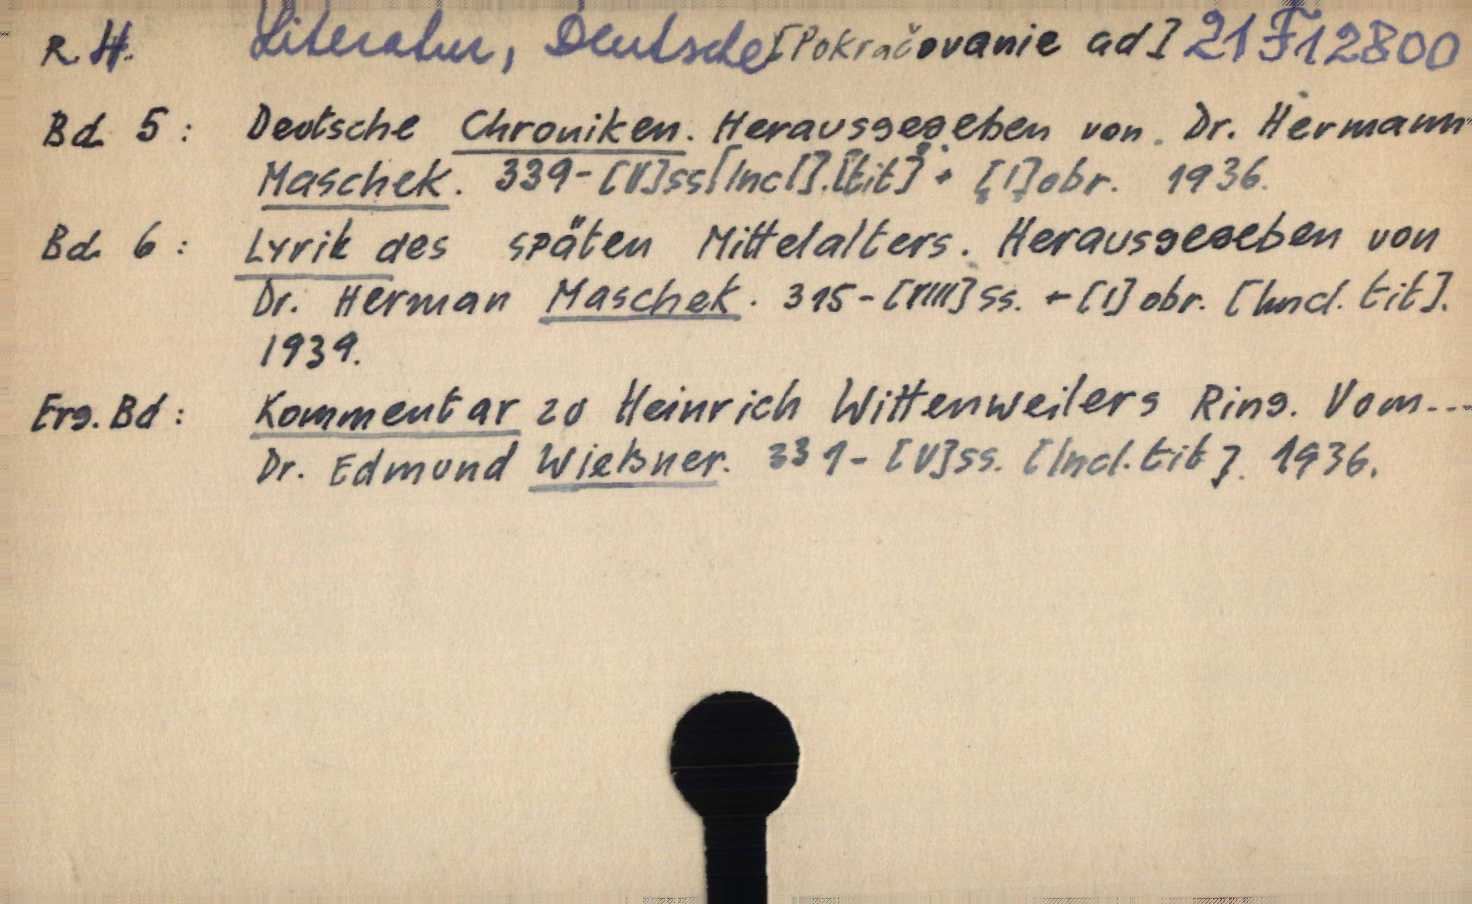 R. H. Literatur, Deutsche [Pokračovanie ad] 21 F 12800
Bd. 5: Deutsche Chroniken. Herausgegeben von. Dr. Hermann
Maschek. 339-[V]ss[Incl].[tit] + [I]obr. 1936.
Bd. 6: Lyrik des späten Mittelalters. Herausgegeben von
Dr. Herman Maschek. 315-[VIII]ss. + [I] obr. [Incl. tit].
1939.
Erg. Bd: Kommentar zu Heinrich Wittenweilers Ring. Vom...
Dr. Edmund Wießner. 331-[V]ss. [Incl. tit]. 1936.